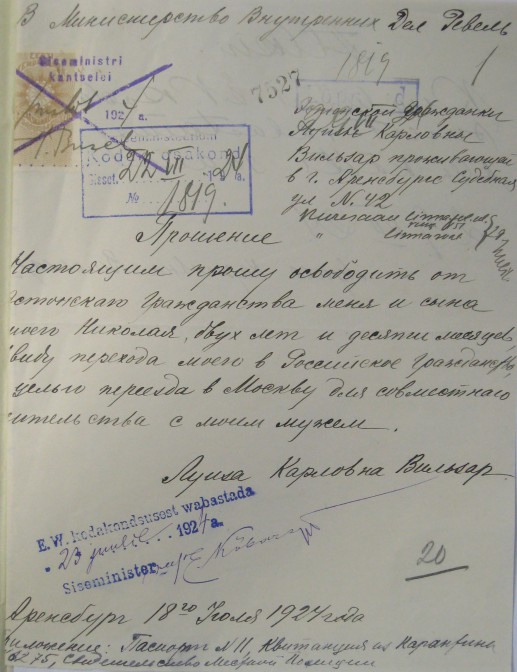 В Министерство Внутренних Дел Ревель
1
Siseministri
kantselei
192 a.
7527
1819
Эстонской Гражданки
Луизы Карловны
Вильзар проживающей
в г. Аренсбурге Судебная
ул. N. 42
Siseministeerium
Kodak. osakond
Sisset. 22 VII 1924 a.
№ 1819.
Прошение
Настоящим прошу освободить от
Эстонского Гражданства меня и сына
моего Николая, двух лет и десяти месяцев,
ввиду перехода моего в Российское Гражданство,
с целью переезда в Москву для совместного
жительства с моим мужем.
Луиза Карловна Вильзар.
E. W. kodakondsusest wabastada
"23 juulil 1924 a.
Siseminister
20
Аренсбург 18го Июля 1924 года
Приложение: Паспорт N 11, Квитанция из Карантина
6275, Свидетельство Местной Полиции